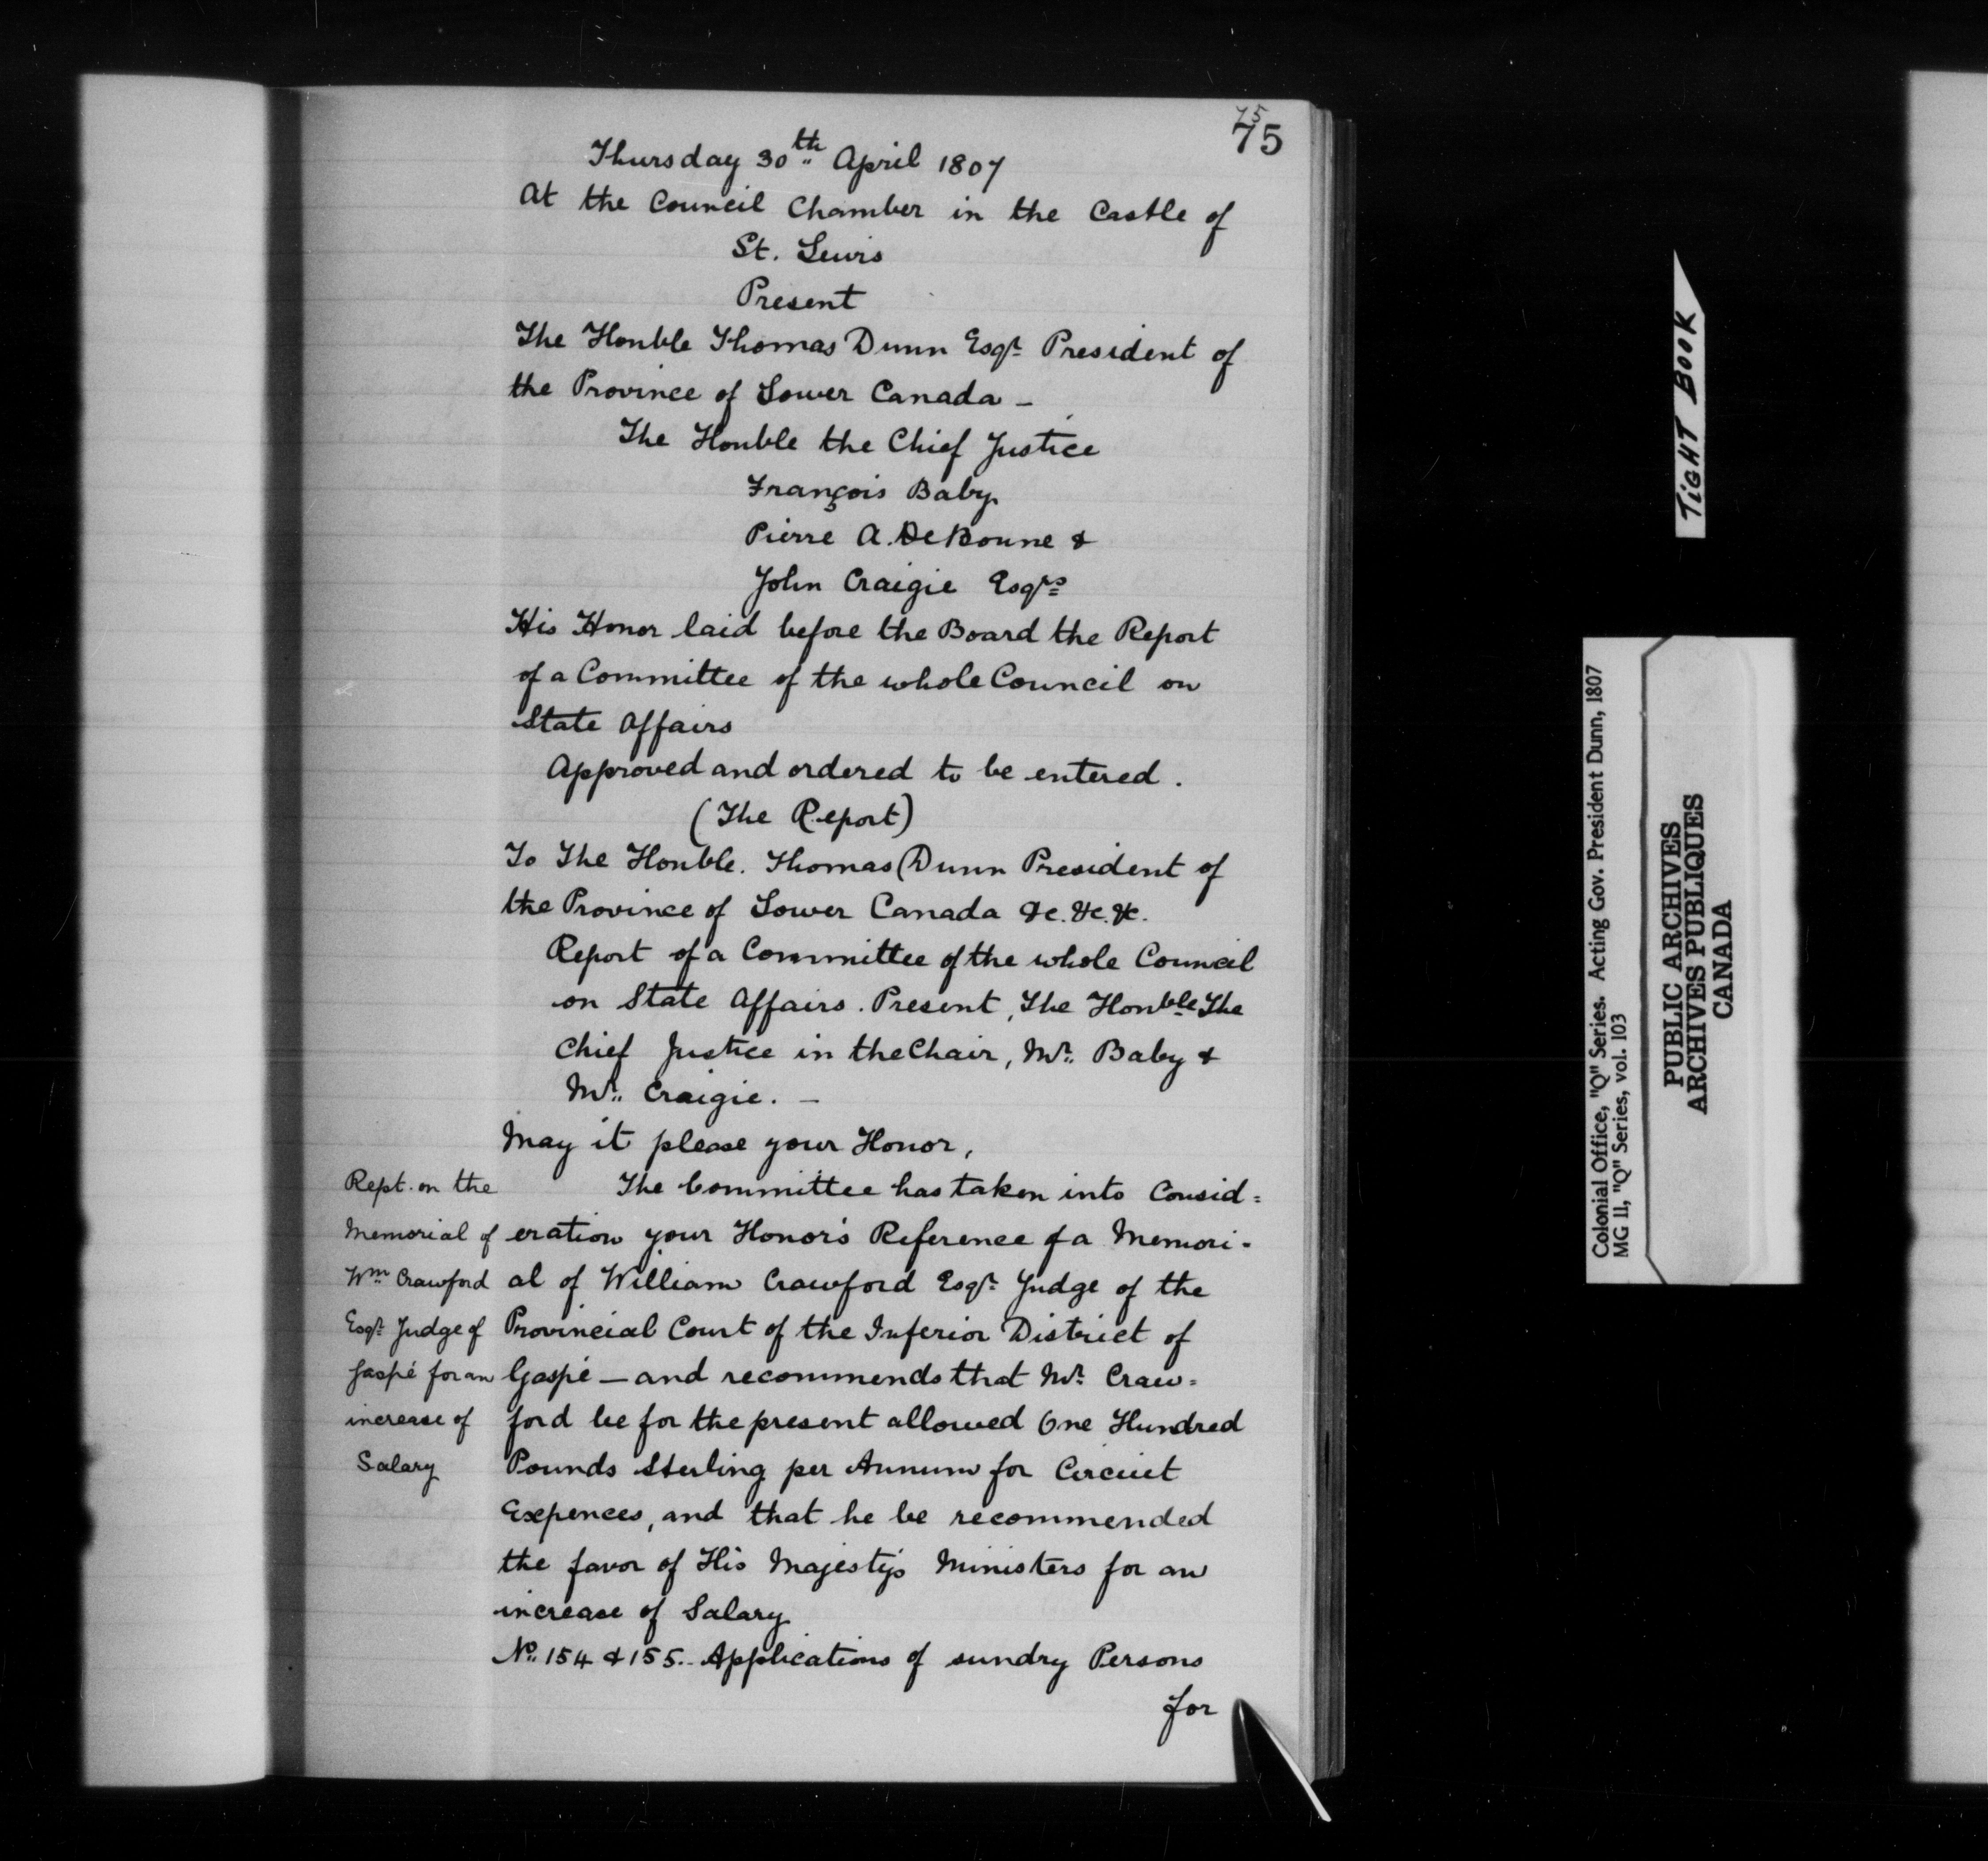 75
75
Thursday 30th April 1807
At the Council Chamber in the Castle of
St. Lewis
Present
The Honble Thomas Dunn Esqr. President of
the Province of Lower Canada –
The Honble the Chief Justice
François Baby
Pierre A. DeBonne &
John Craigie Esqrs
His Honor laid before the Board the Report
of a Committee of the whole Council on
State Affairs
Approved and ordered to be entered.
(The Report)
To The Honble. Thomas Dunn President of
the Province of Lower Canada &c. &c. &c.
Report of a Committee of the whole Council
on State Affairs. Present, The Honble The
Chief Justice in the Chair, Mr. Baby &
Mr. Craigie. –
May it please your Honor,
The Committee has taken into Consid=
eration your Honor's Reference of a Memori-
al of William Crawford Esqr. Judge of the
Provincial Court of the Inferior District of
Gaspé – and recommends that Mr. Craw=
ford be for the present allowed One Hundred
Pounds Sterling per Annum for Circuit
Expences, and that he be recommended
the favor of His Majesty's Ministers for an
increase of Salary
No. 154 & 155. Applications of sundry Persons
for
Rept. on the
Memorial of
Wm Crawford
Esqr. Judge of
Gaspé for an
increase of
Salary
TIGHT BOOK
Colonial Office, "Q" Series. Acting Gov. President Dunn, 1807
MG 11, "Q" Series, vol. 103
PUBLIC ARCHIVES
ARCHIVES PUBLIQUES
CANADA